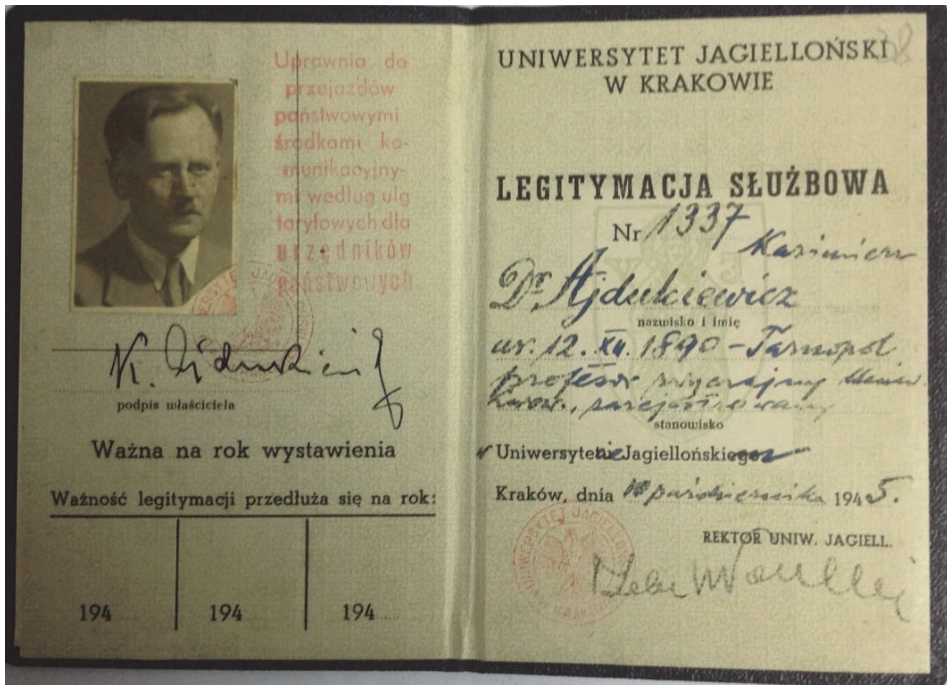 Uprawnia do
przejazdów
państwowymi
środkami ko-
munikacyjny-
mi według ulg
taryfowych dla
urzędników
państwowych
K. Ajdukiewicz
podpis właściciela
Ważna na rok wystawienia
Ważność legitymacji przedłuża się na rok:
194 194 194
38
UNIWERSYTET JAGIELLOŃSKI
W KRAKOWIE
LEGITYMACJA SŁUŻBOWA
Nr 1337
Kazimierz
Dr Ajdukiewicz
nazwisko i imię
ur. 12. XII. 1890 – Tarnopol
profesor zwyczajny Uniw.
Lwow., zarejestrowany
stanowisko
w Uniwersytecie Jagiellońskiego
Kraków, dnia października 1945.
REKTOR UNIW. JAGIELL.
UNIWERSYTET JAGIELLOŃSKI